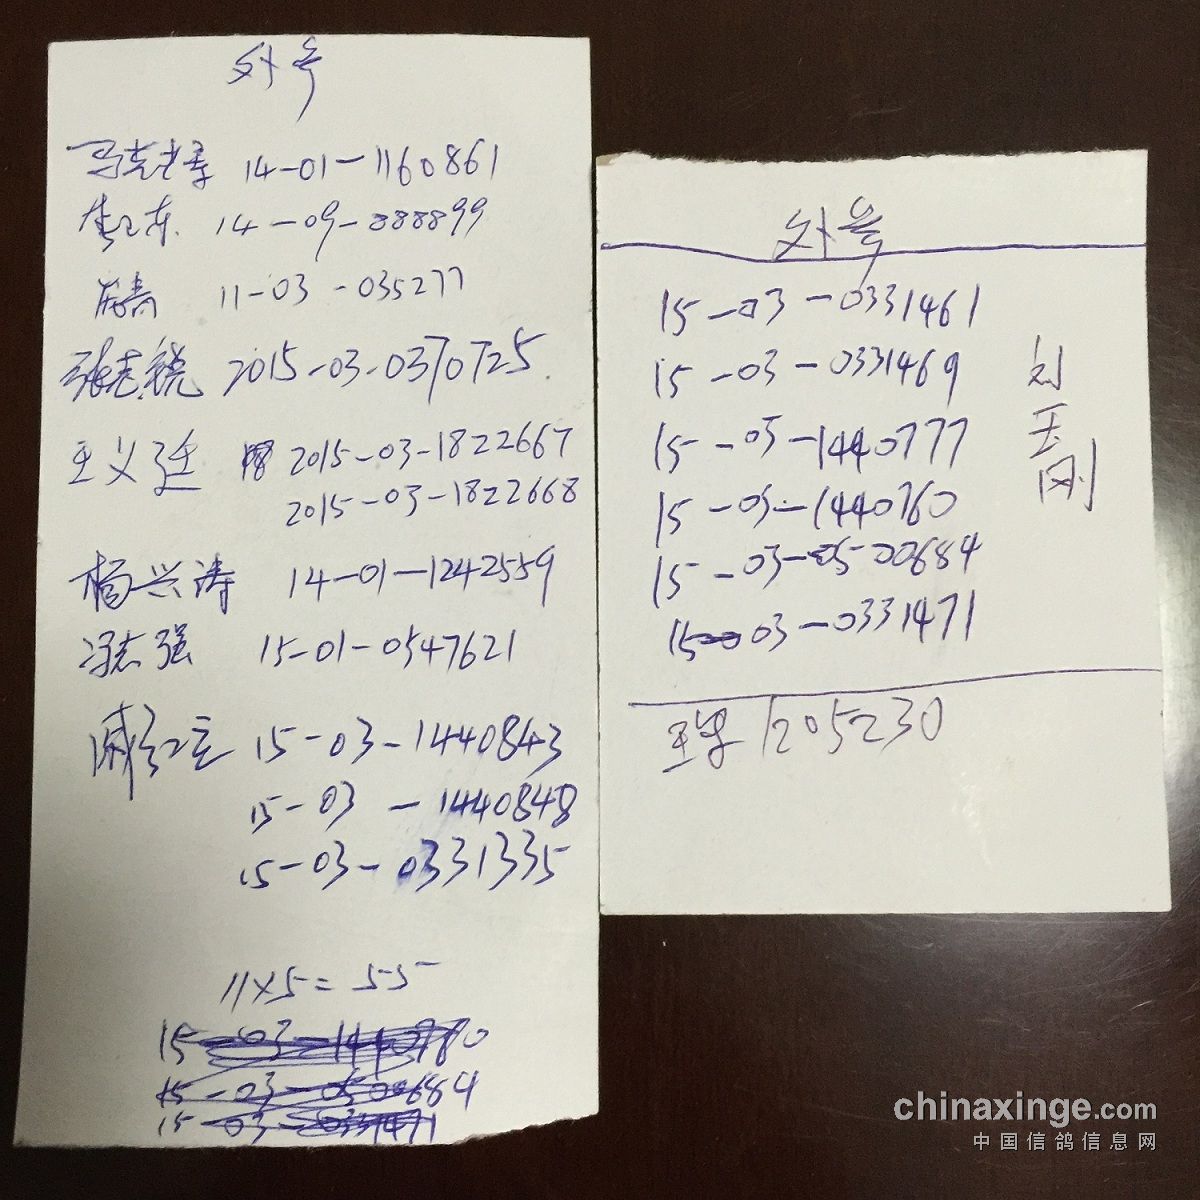 外号
14-01-1160861
李江东 14-09-888899
11-03-035277
张志锐 2015-03-0370725
王义廷 2015-03-1822667
2015-03-1822668
杨兴涛 14-01-1242559
冯志强 15-01-0547621
戚红立 15-03-1440843
15-03-1440848
15-03-0331335
11×5=55
15-03-1440780
15-03-0500684
15-03-0331471
外号
15-03-0331461
15-03-0331469
15-03-1440777
15-03-1440760
15-03-0500684
15-03-0331471
刘玉刚
1205230
chinaxinge.com
中国信鸽信息网